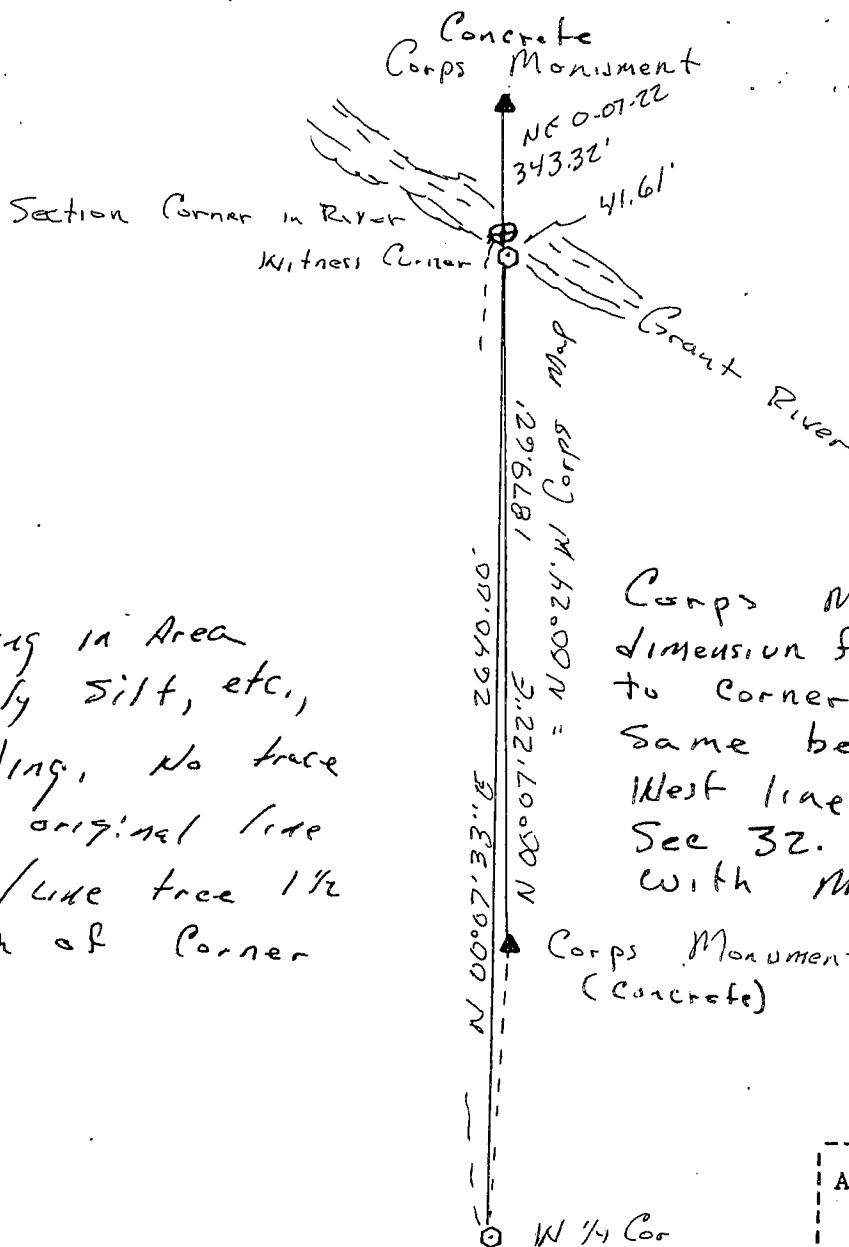 Concrete
Corps Monument
NE 0-07-22
343.32'
41.61'
Section Corner in River
Witness Corner
Grant River
1876.62'
N 00°07'22"E = N.00°24'W Corps Map
2640.00'
N 00°07'33"E
ng in Area
ly silt, etc.,
ling, No trace
original line
/Line tree 1½
of Corner
Corps M
dimension f
to Corner
Same be
West line
Sec 32.
with M
Corps Monument
(Concrete)
W ¼ Cor
A